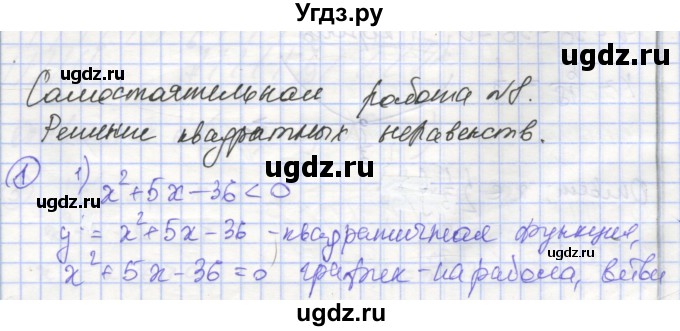 Угдз.ру
Самостоятельная работа №8.
ugdz.ru ugdz.ru
Решение квадратных неравенств.
ugdz.ru
① 1) x²+5x-36<0
ugdz.ru ugdz.ru
y = x²+5x-36 -квадратичная функция,
x²+5x-36=0 график-парабола, ветви
ugdz.ru